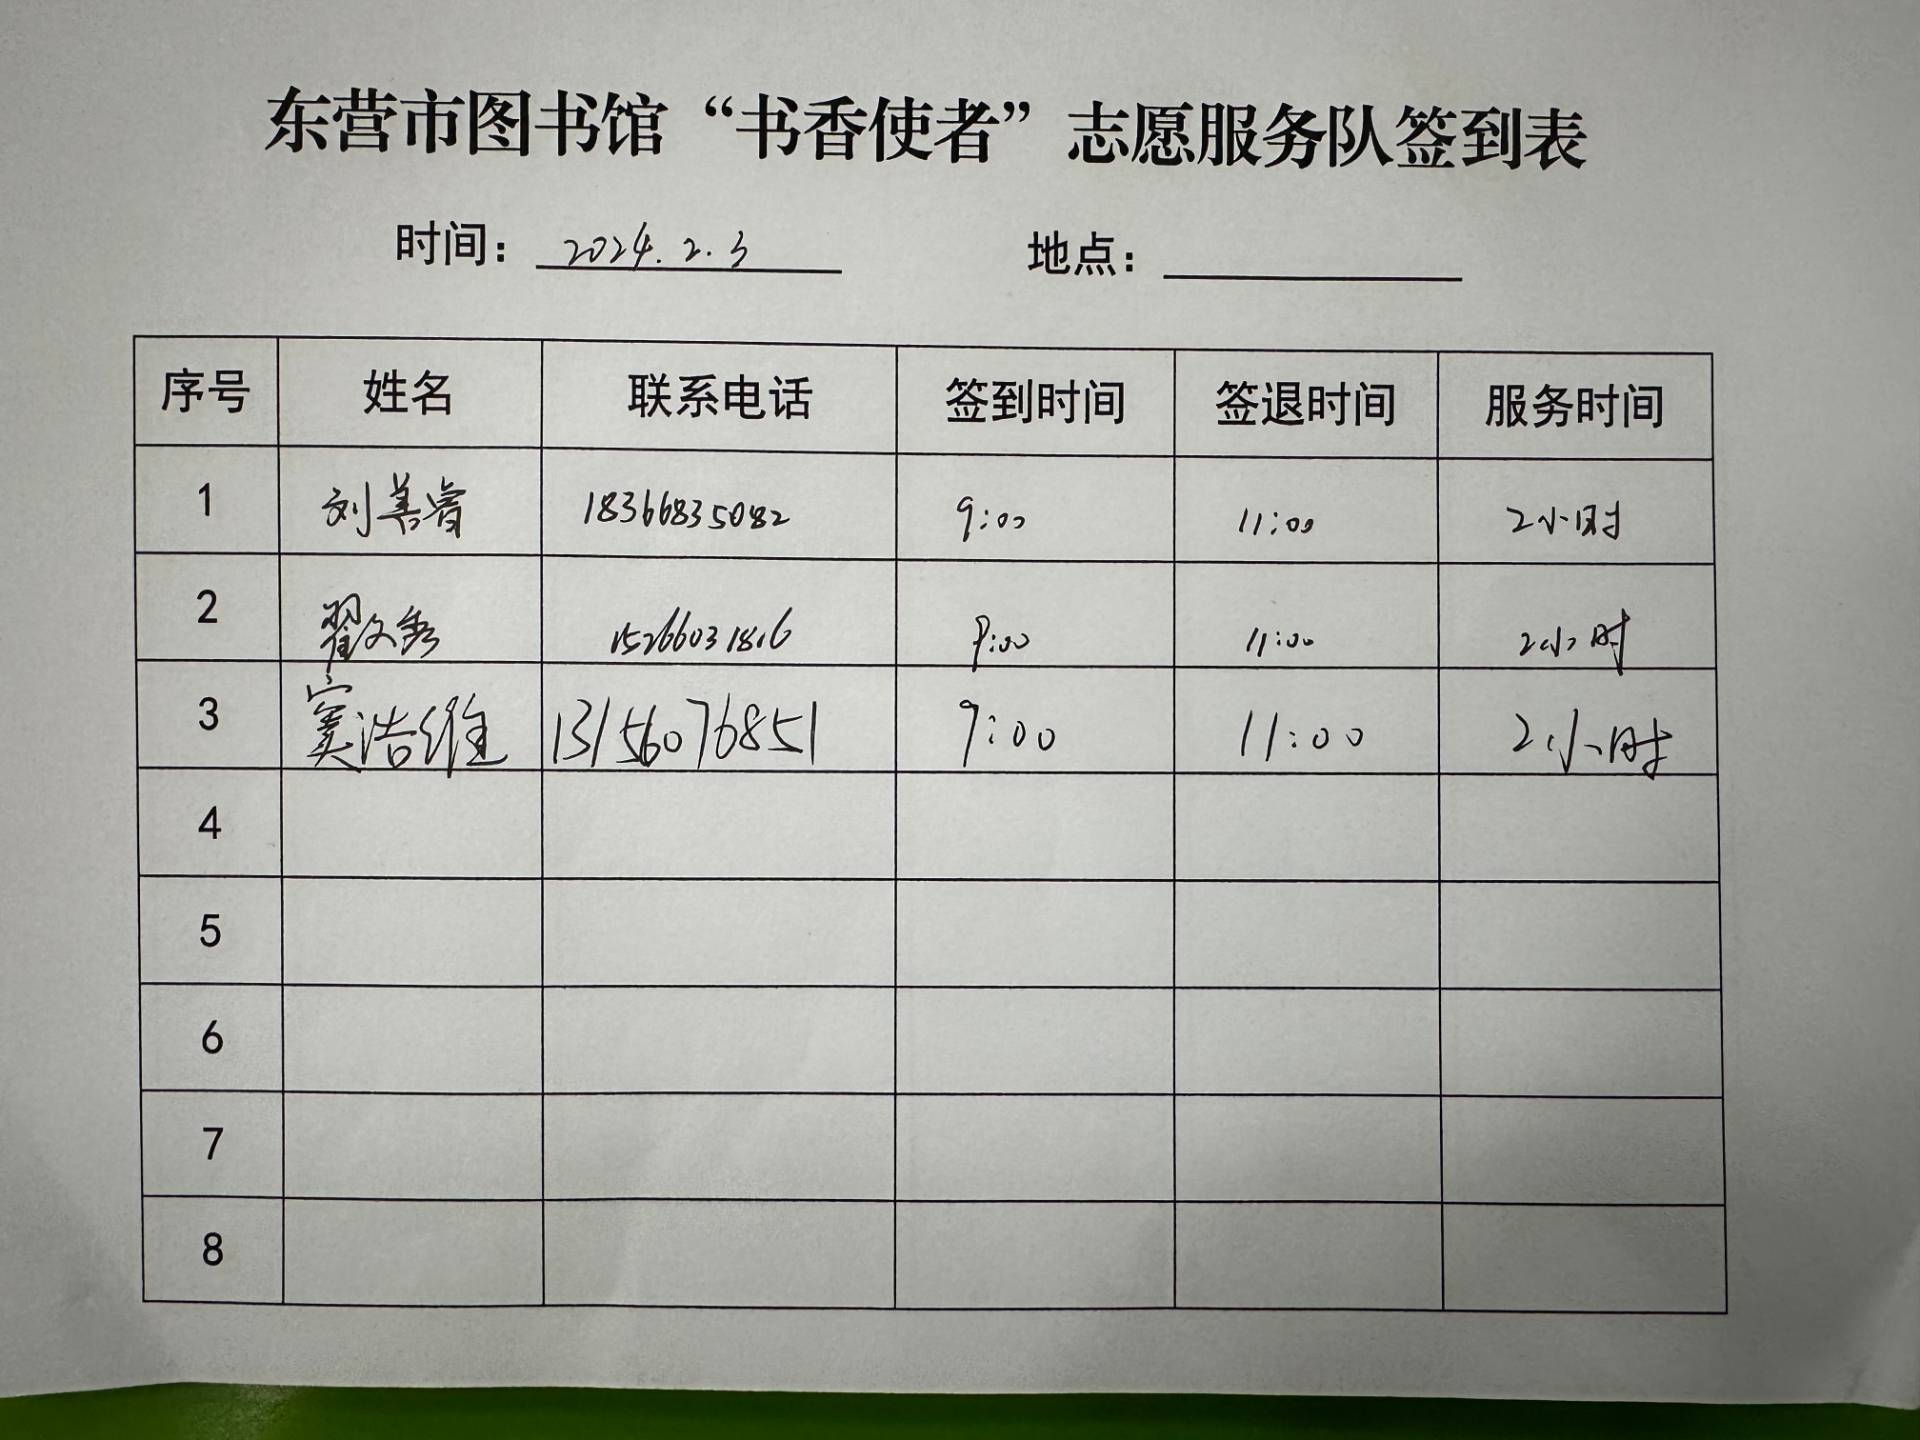 东营市图书馆“书香使者”志愿服务队签到表
时间： 2024.2.3 地点：
序号 姓名 联系电话 签到时间 签退时间 服务时间
1 刘善睿 18366835082 9:00 11:00 2小时
2 翟文秀 15266031816 9:00 11:00 2小时
3 窦浩维 13156076851 9:00 11:00 2小时
4
5
6
7
8